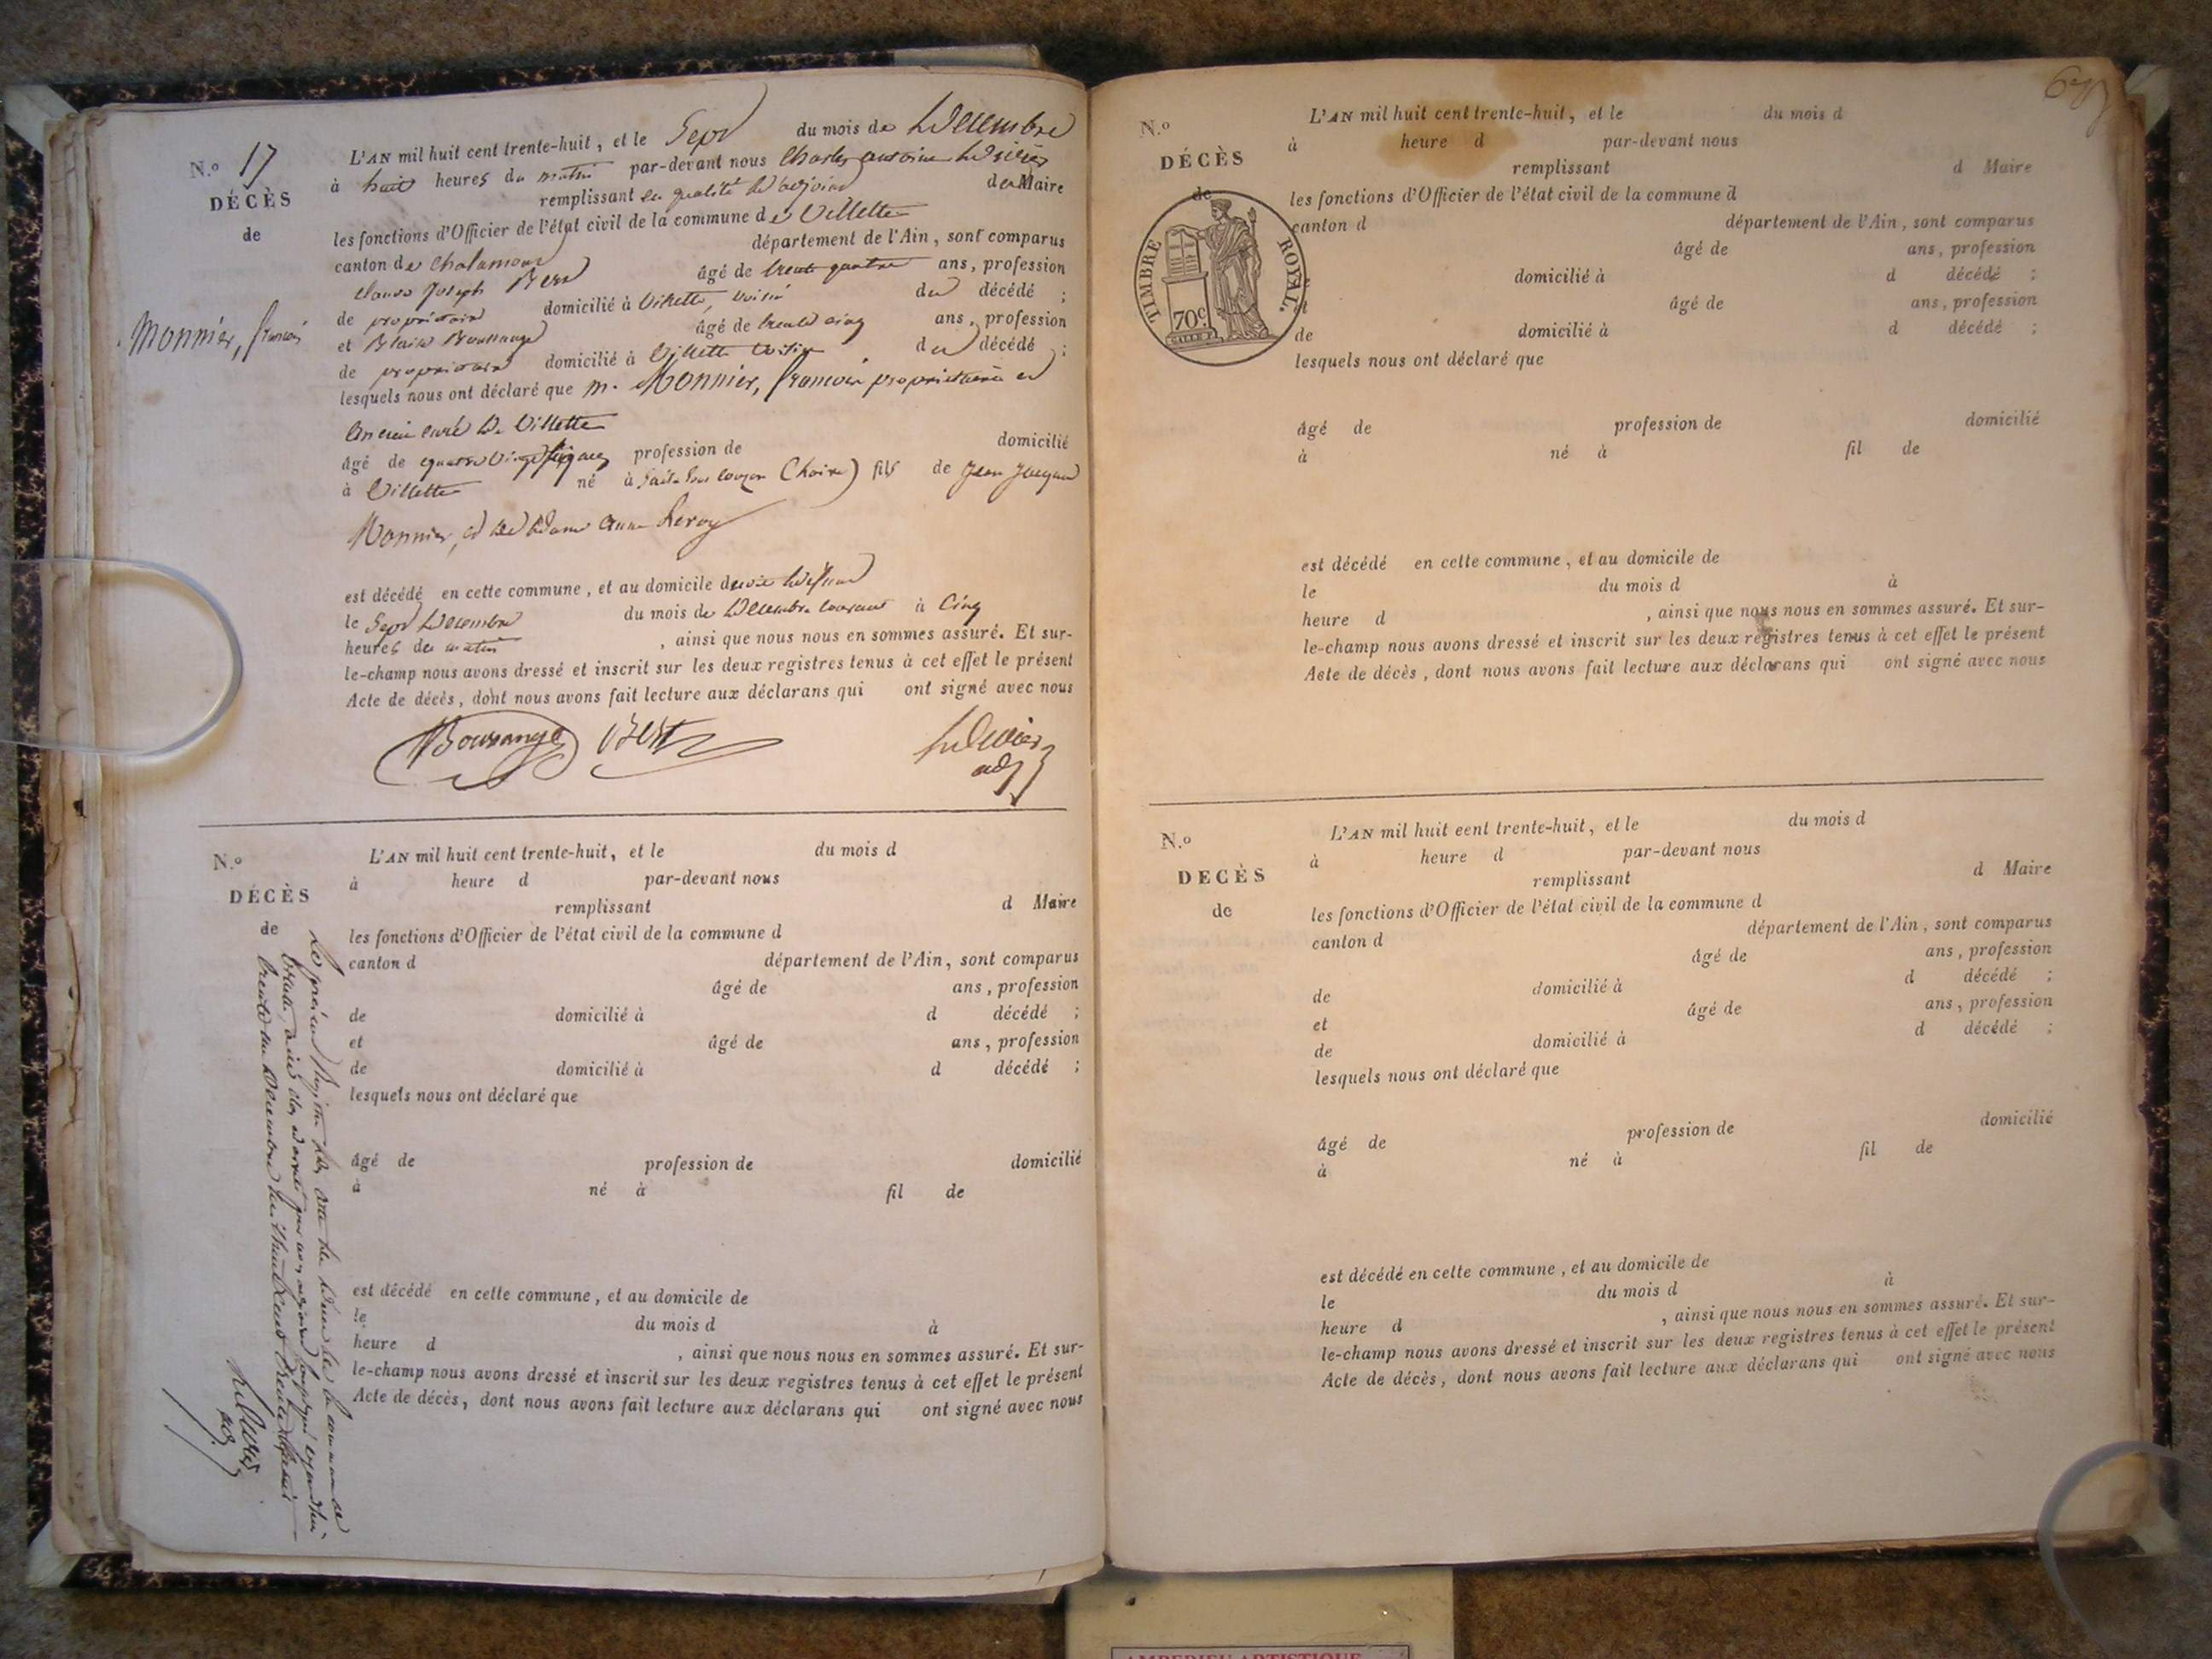 N.º 17
DÉCÈS
de
Monnier, françois
L'AN mil huit cent trente-huit, et le Sept du mois de Decembre
à huit heures du matin par-devant nous Charles antoine
remplissant en qualité d'adjoint de Maire
les fonctions d'Officier de l'état civil de la commune de Villette
canton de Chalamont département de l'Ain, sont comparus
Claude Joseph Bert âgé de trente quatre ans, profession
de propriétaire domicilié à Villette, voisin du décédé ;
et Blaise Boussange âgé de trente cinq ans, profession
de propriétaire domicilié à Villette voisin du décédé ;
lesquels nous ont déclaré que m. Monnier, françois propriétaire et
ancien curé de Villette
âgé de quatre vingt profession de domicilié
à Villette né à (Loire) fils de Jean Jacques
Monnier, et de Dame anne Leroy
est décédé en cette commune, et au domicile de
le Sept Decembre du mois de Decembre courant à Cinq
heures du matin, ainsi que nous nous en sommes assuré. Et sur-
le-champ nous avons dressé et inscrit sur les deux registres tenus à cet effet le présent
Acte de décès, dont nous avons fait lecture aux déclarans qui ont signé avec nous
Boussange Bert
adj
N.º
DÉCÈS
de
L'AN mil huit cent trente-huit, et le du mois d
à heure d par-devant nous
remplissant d Maire
les fonctions d'Officier de l'état civil de la commune d
canton d département de l'Ain, sont comparus
âgé de ans, profession
de domicilié à d décédé ;
et âgé de ans, profession
de domicilié à d décédé ;
lesquels nous ont déclaré que
âgé de profession de domicilié
à né à fil de
est décédé en cette commune, et au domicile de
le du mois d à
heure d , ainsi que nous nous en sommes assuré. Et sur-
le-champ nous avons dressé et inscrit sur les deux registres tenus à cet effet le présent
Acte de décès, dont nous avons fait lecture aux déclarans qui ont signé avec nous
Le présent de la commune de
Villette, a été clos et arrêté par nous adjoint aujourd'hui
trente un Decembre mil huit cent trente huit
adj
N.º
DÉCÈS
de
TIMBRE ROYAL.
70c
L'AN mil huit cent trente-huit, et le du mois d
à heure d par-devant nous
remplissant d Maire
les fonctions d'Officier de l'état civil de la commune d
canton d département de l'Ain, sont comparus
âgé de ans, profession
domicilié à d décédé ;
et âgé de ans, profession
de domicilié à d décédé ;
lesquels nous ont déclaré que
âgé de profession de domicilié
à né à fil de
est décédé en cette commune, et au domicile de
le du mois d à
heure d , ainsi que nous nous en sommes assuré. Et sur-
le-champ nous avons dressé et inscrit sur les deux registres tenus à cet effet le présent
Acte de décès, dont nous avons fait lecture aux déclarans qui ont signé avec nous
N.º
DECÈS
de
L'AN mil huit cent trente-huit, et le du mois d
à heure d par-devant nous
remplissant d Maire
les fonctions d'Officier de l'état civil de la commune d
canton d département de l'Ain, sont comparus
âgé de ans, profession
de domicilié à d décédé ;
et âgé de ans, profession
de domicilié à d décédé ;
lesquels nous ont déclaré que
âgé de profession de domicilié
à né à fil de
est décédé en cette commune, et au domicile de
le du mois d à
heure d , ainsi que nous nous en sommes assuré. Et sur-
le-champ nous avons dressé et inscrit sur les deux registres tenus à cet effet le présent
Acte de décès, dont nous avons fait lecture aux déclarans qui ont signé avec nous
AMBERIEU ARTISTIQUE